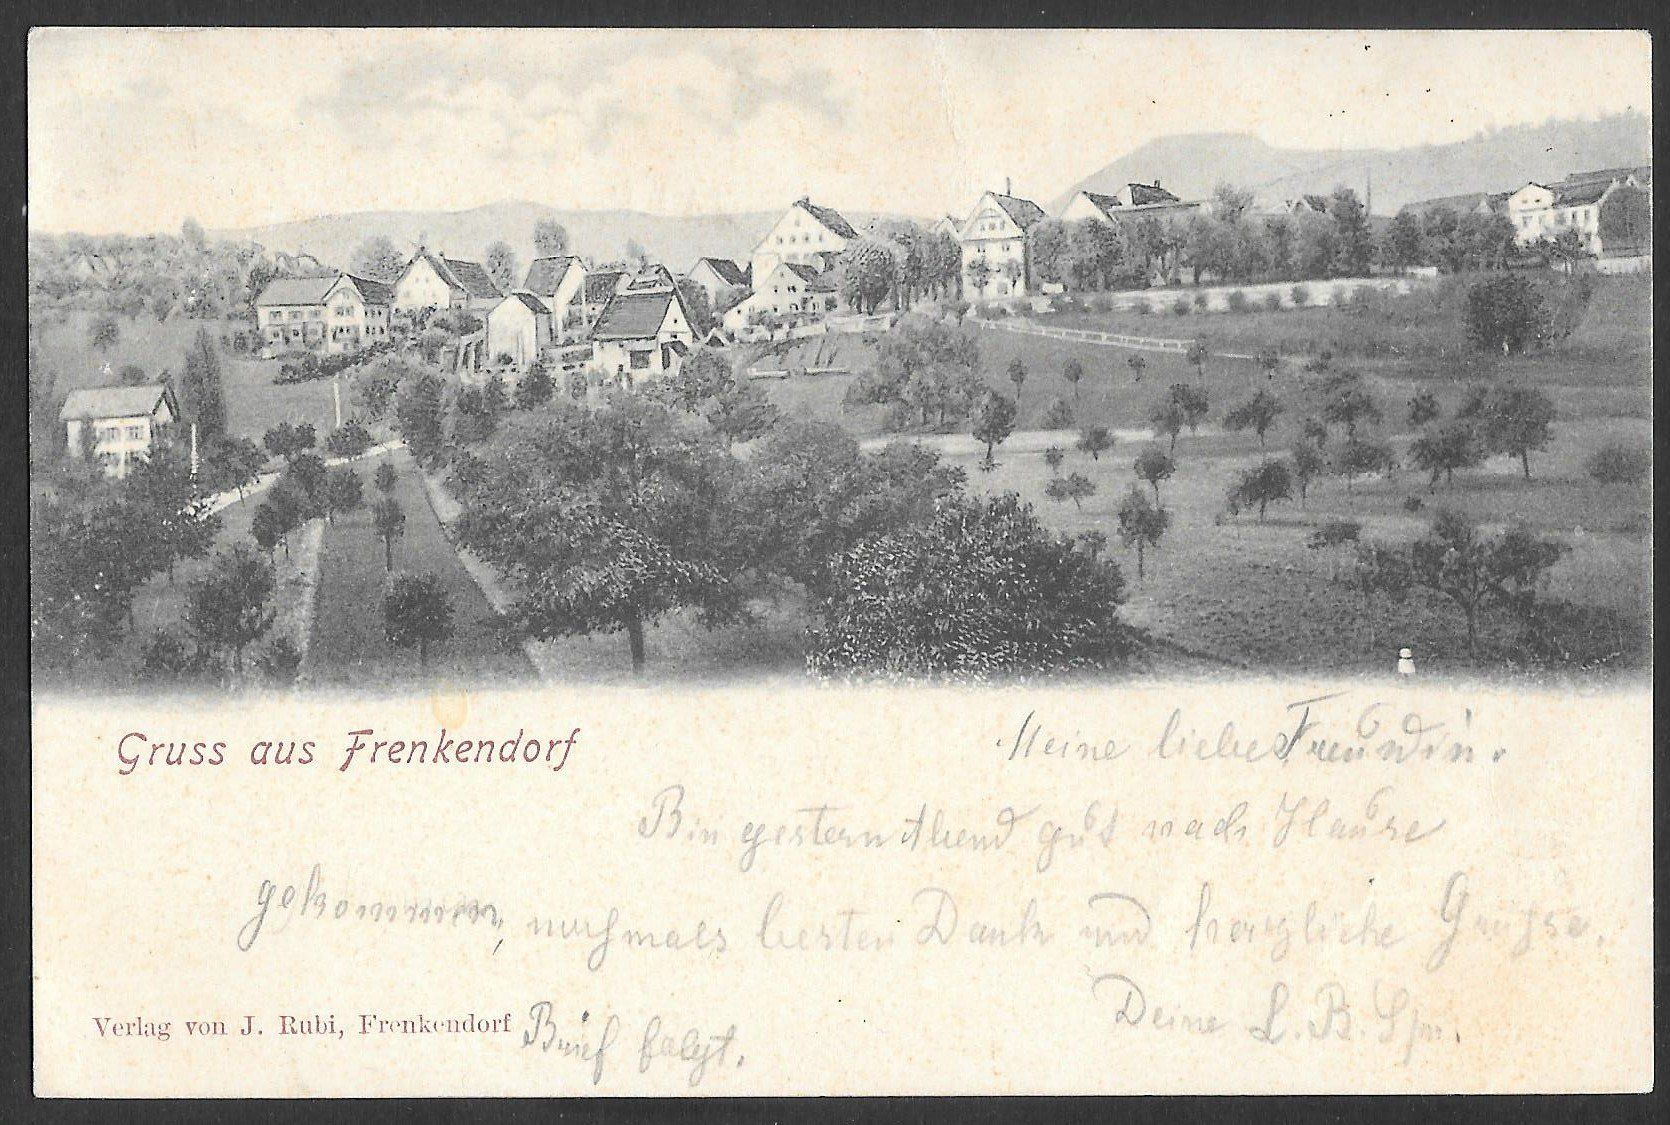 Gruss aus Frenkendorf
Meine liebe Freundin.
Bin gestern Abend gut nach Hause
gekommen, nochmals besten Dank und herzliche Grüsse.
Deine L. B.
Verlag von J. Rubi, Frenkendorf
Brief folgt.